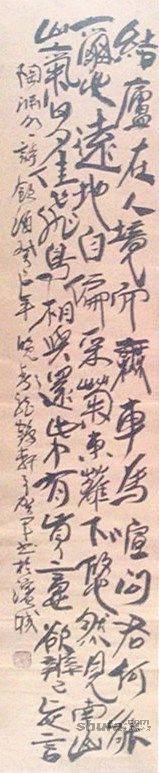 結廬在人境而無車馬喧問君何能
爾心遠地自偏采菊東籬下悠然見南山
山氣日夕佳飛鳥相與還此中有真意欲辨已忘言
陶淵明詩飲酒癸巳年